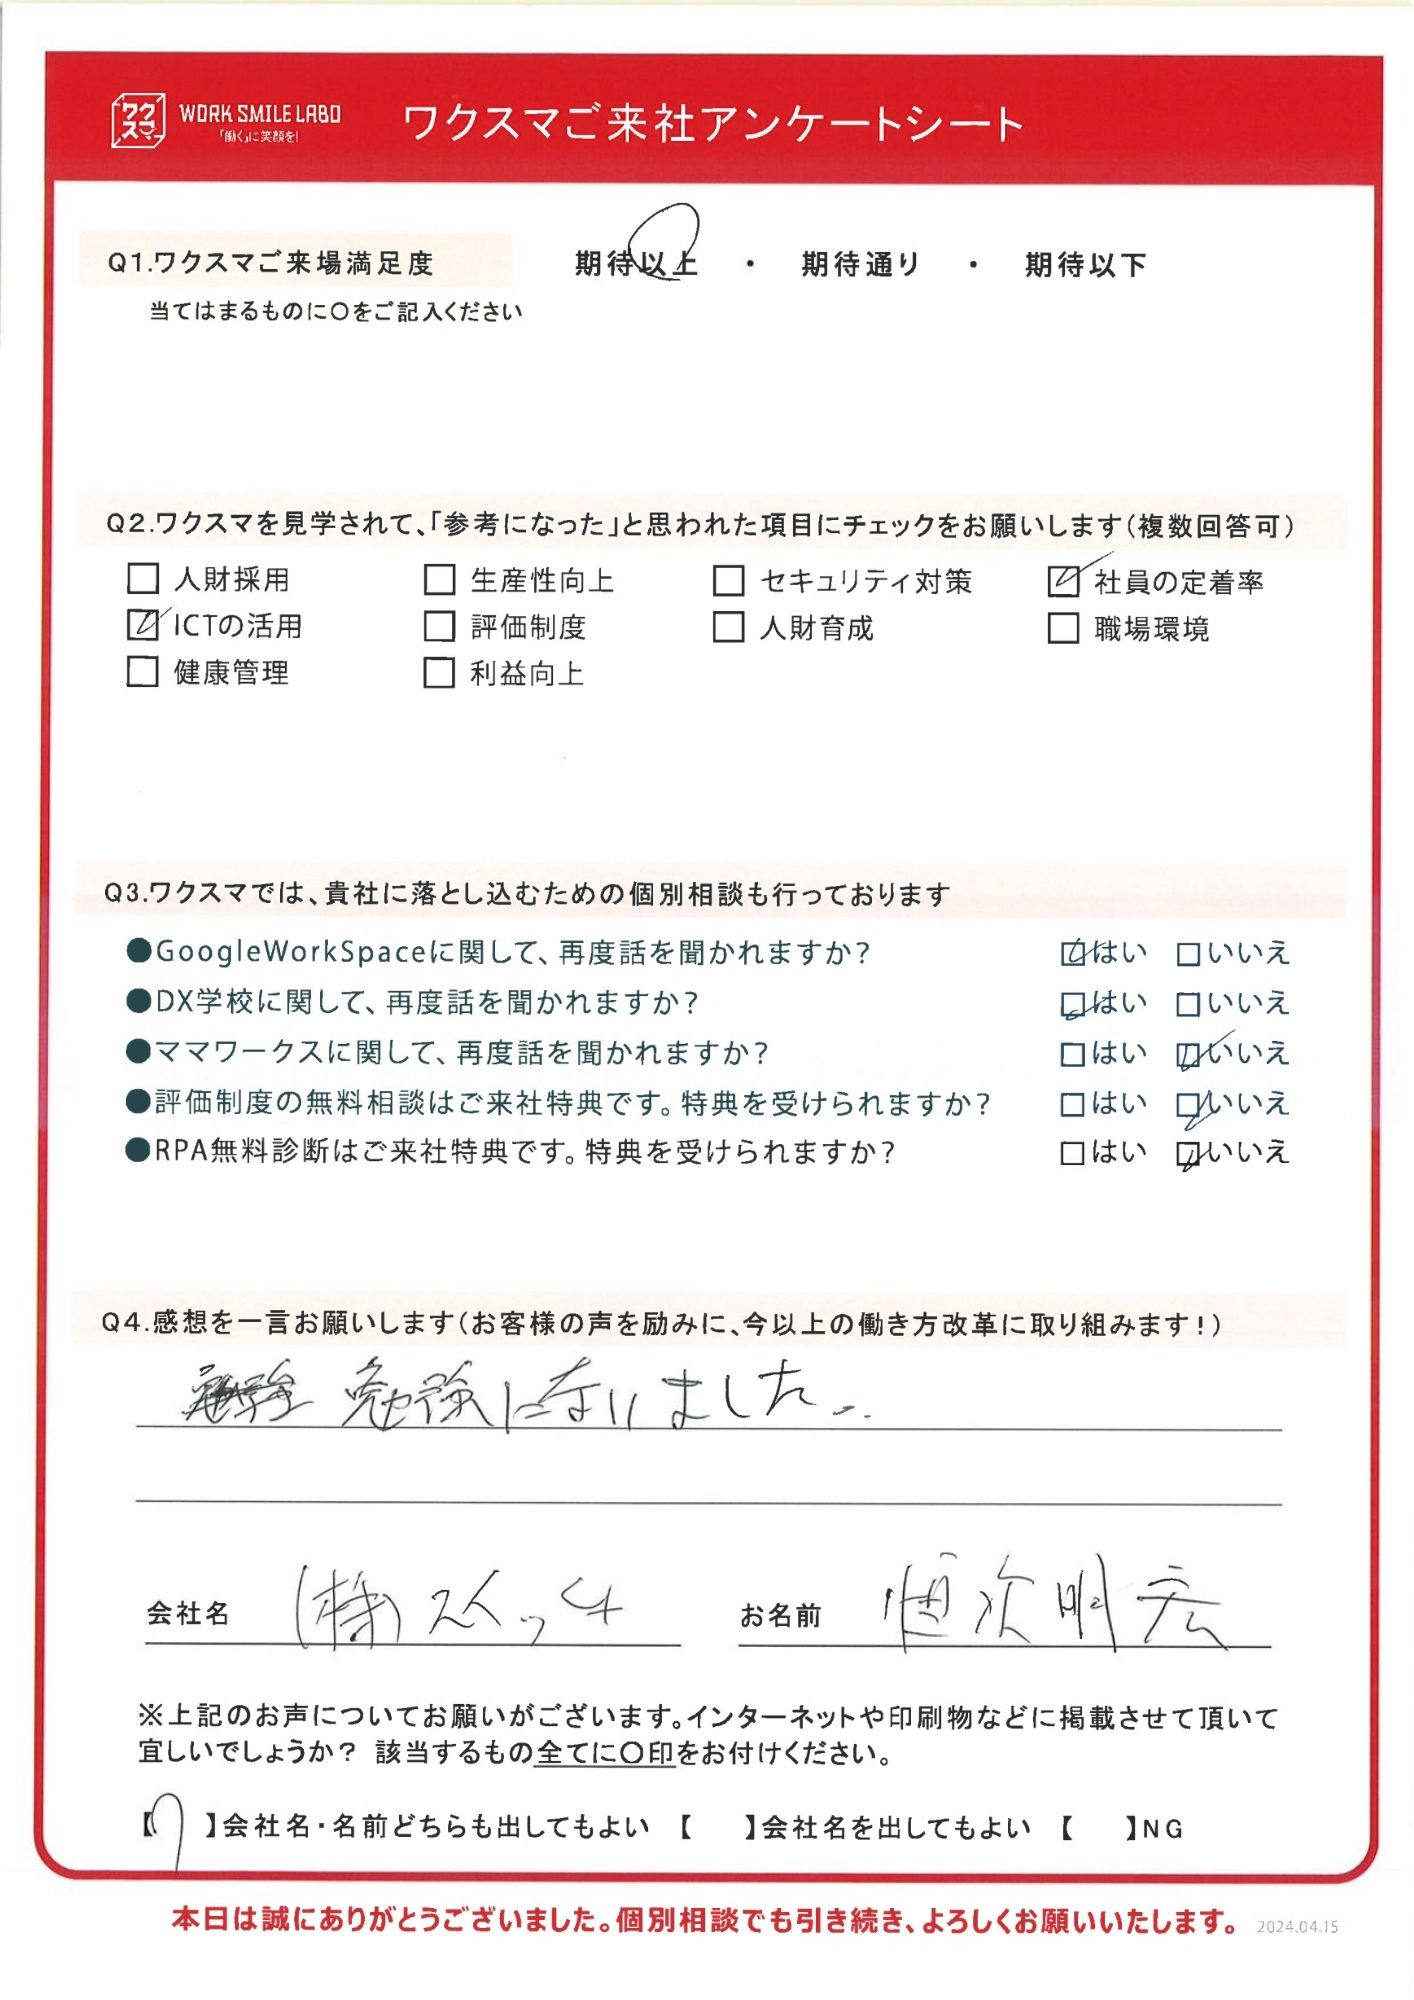 ワクスマ WORK SMILE LABO 「働く」に笑顔を! ワクスマご来社アンケートシート
Q1.ワクスマご来場満足度 期待以上 ・ 期待通り ・ 期待以下
当てはまるものに〇をご記入ください
Q2.ワクスマを見学されて、「参考になった」と思われた項目にチェックをお願いします(複数回答可)
□ 人財採用 □ 生産性向上 □ セキュリティ対策 ☑ 社員の定着率
☑ ICTの活用 □ 評価制度 □ 人財育成 □ 職場環境
□ 健康管理 □ 利益向上
Q3.ワクスマでは、貴社に落とし込むための個別相談も行っております
●GoogleWorkSpaceに関して、再度話を聞かれますか? ☑はい □いいえ
●DX学校に関して、再度話を聞かれますか? ☑はい □いいえ
●ママワークスに関して、再度話を聞かれますか? □はい ☑いいえ
●評価制度の無料相談はご来社特典です。特典を受けられますか? □はい ☑いいえ
●RPA無料診断はご来社特典です。特典を受けられますか? □はい ☑いいえ
Q4.感想を一言お願いします(お客様の声を励みに、今以上の働き方改革に取り組みます!)
勉強になりました
会社名 (株) お名前 明宏
※上記のお声についてお願いがございます。インターネットや印刷物などに掲載させて頂いて
宜しいでしょうか? 該当するもの全てに〇印をお付けください。
【 】会社名・名前どちらも出してもよい 【 】会社名を出してもよい 【 】NG
本日は誠にありがとうございました。個別相談でも引き続き、よろしくお願いいたします。 2024.04.15